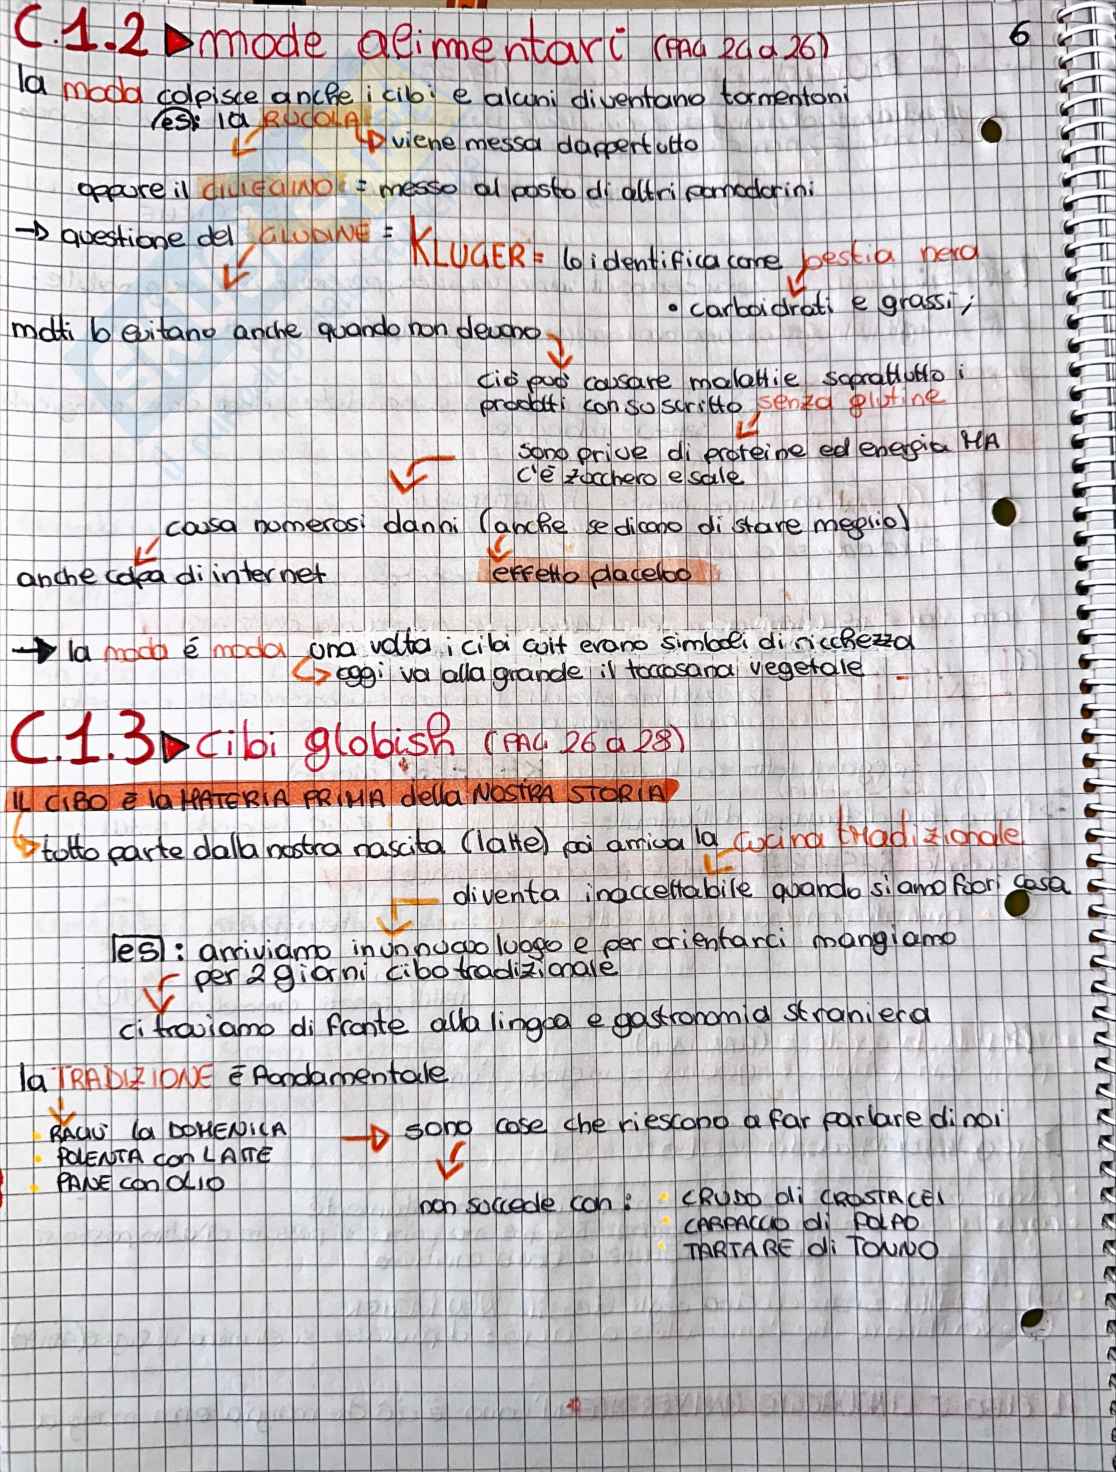 C.1.2 ▶ mode alimentari (PAG 24 a 26)
6
la moda colpisce anche i cibi e alcuni diventano tormentoni
es: la RUCOLA
viene messa dappertutto
oppure il CILIEGINO = messo al posto di altri pomodorini
→ questione del GLUTINE = KLUGER = lo identifica come bestia nera
• carboidrati e grassi;
molti lo evitano anche quando non devono
ciò può causare malattie soprattutto i
prodotti con su scritto senza glutine
sono prive di proteine ed energia MA
c'è zucchero e sale
causa numerosi danni (anche se dicono di stare meglio)
anche colpa di internet
effetto placebo
→ la moda é moda una volta i cibi cult erano simboli di ricchezza
oggi va alla grande il toccasana vegetale
C.1.3 ▶ cibi globish (PAG 26 a 28)
IL CIBO è la MATERIA PRIMA della NOSTRA STORIA
tutto parte dalla nostra nascita (latte) poi arriva la cucina tradizionale
diventa inaccettabile quando siamo fuori casa
es: arriviamo in un nuovo luogo e per orientarci mangiamo
per 2 giorni cibo tradizionale
ci troviamo di fronte alla lingua e gastronomia straniera
la TRADIZIONE è fondamentale
• RAGÙ la DOMENICA
• POLENTA con LATTE
• PANE con OLIO
→ sono cose che riescono a far parlare di noi
non succede con: • CRUDO di CROSTACEI
• CARPACCIO di POLPO
• TARTARE di TONNO